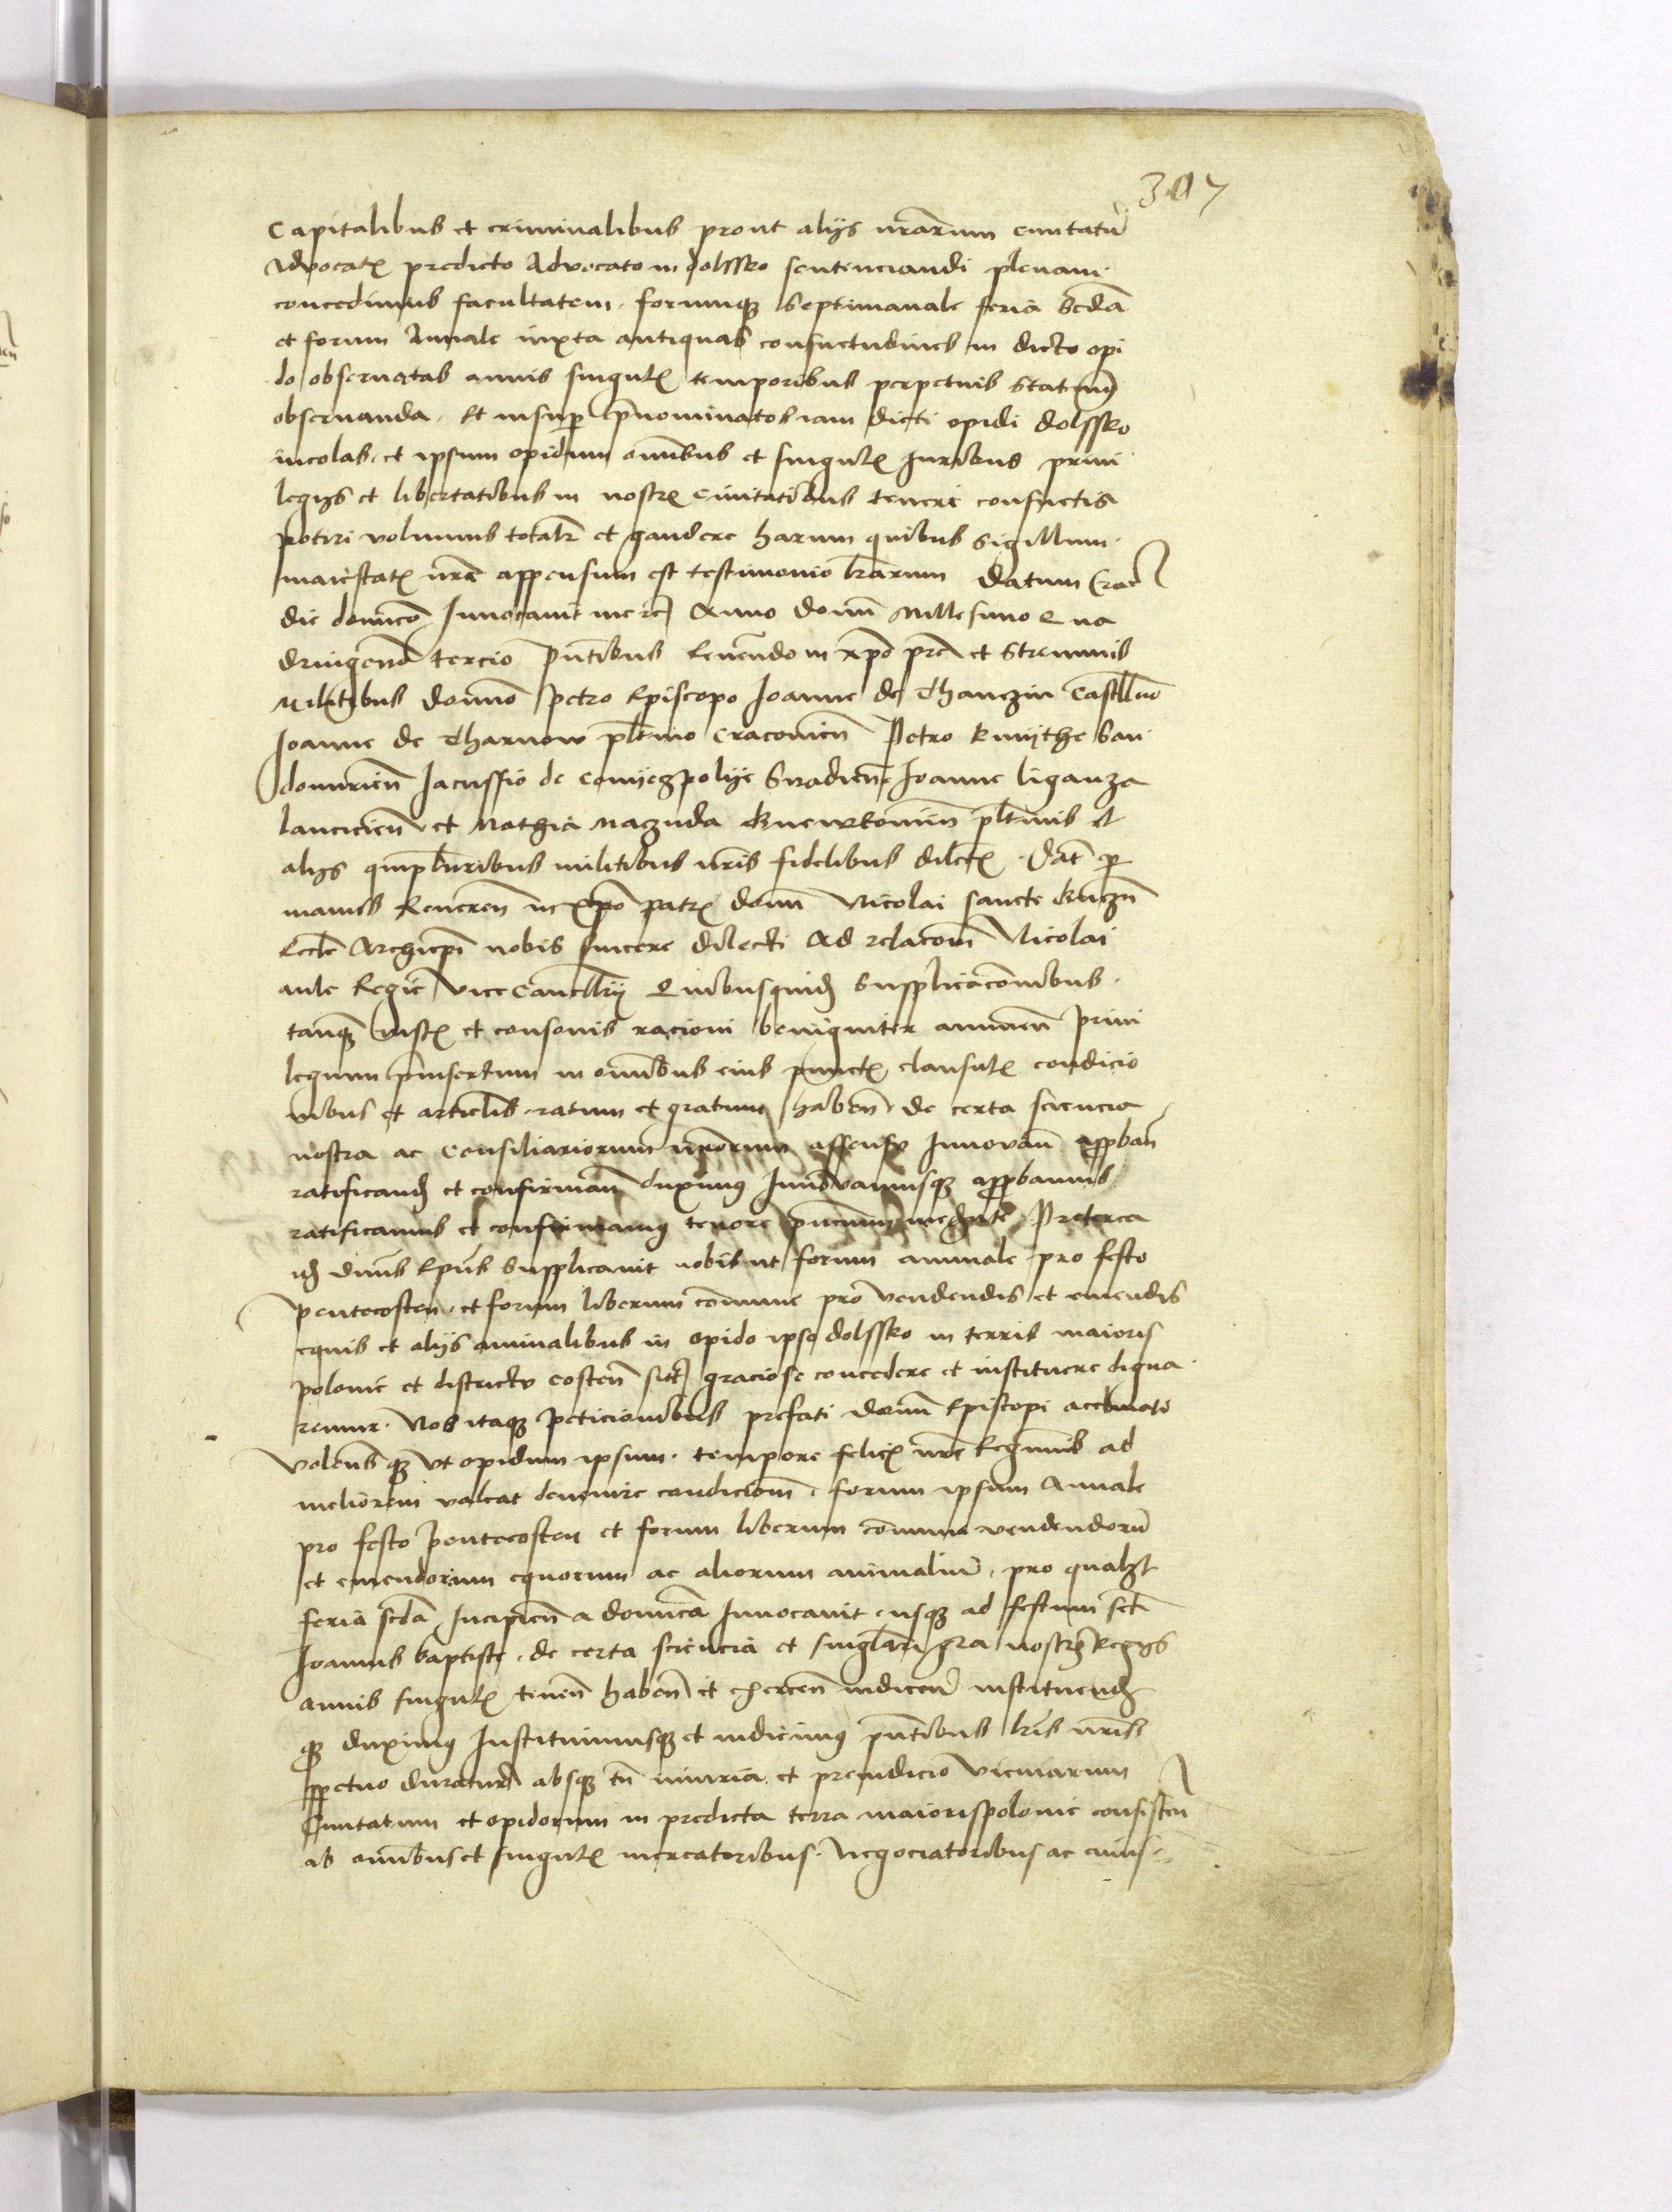 307
Capitalibus et criminalibus prout alijs nrarum ciuitatu
Aduocatis predicto Aduocato in dolssko sentenciandi plenam
concedimus facultatem. forumque Septimanale feria Scda
et forum Annale iuxta antiquas consuetudines in dicto opi
do obseruatas annis singulis temporibus perpetuis statuim9
obseruanda. Et insuper prenominatos iam dicti opidi dolssko
incolas. et ipsum opidum omnibus et singulis Juribus priui
legijs et libertatibus in nostris Ciuitatibus teneri consuetis
potiri volumus totaliter et gaudere harum quibus Sigillum
maiestatis nre appensum est testimonio lrarum Datum Crac
die dominico Inuocauit Anno domini Millesimo Qua
dringen tercio pntibus Reuendo in xpo pre et Strennuis
Militibus domino Petro Episcopo Joanne de Thanczin Castellno
Joanne de Tharnow pltino Cracouien Petro kmijthe San
domirien Jacussio de Conijeczpolije Siradien Joanne liganza
lancicien et Mathia pltinis et
alijs quampluribus militibus nris fidelibus dilectis. Dat per
manus Reueren in xpo patris domini Nicolai sancte Gnezn
Eccle Archiepi nobis sincere dilecti Ad relacom Nicolai
aule Regie vicecancellarij Quibusquidem Supplicaconibus
tamquam iustis et consonis racioni benigniter annuen priui
legium preinsertum in omnibus eius punctis clausulis condicio
nibus et articulis. ratum et gratum haben de certa sciencia
nostra ac Consiliariorum nrorum assensu Innouan approban
ratificand et confirman duximus Innouamusque approbamus
ratificamus et confirmamus tenore pncium mediante Preterea
idem dnus Epus Supplicauit nobis ut forum annuale pro festo
Pentecosten. et forum liberum commune pro vendendis et emendis
equis et alijs animalibus in opido ipso dolssko in terris maioris
polonie et districtu costen graciose concedere et instituere digna
remur. Nos itaque Peticionibus prefati domini Episcopi
volensque vt opidum ipsum. tempore felicis nre Regiminis ad
meliorem valeat deuenire condicionem. forum ipsum Annale
pro festo Pentecosten et forum liberum commune vendendoru
et emendorum equorum ac aliorum animaliu. pro qualibet
feria scda Incipien a dominica Inuocauit. usque ad festum scti
Joannis baptiste. de certa sciencia et singulari gra nostris Regijs
annis singulis tenen haben et exercen indicend instituend
que duximus Instituimusque et indicimus pntibus lris nris
perpetuo duratur absque tn iniuria et preiudicio viciniarum
Ciuitatum et opidorum in predicta terra maiorispolonie consisten
ab omnibus et singulis mercatoribus. Negociatoribus ac cuius